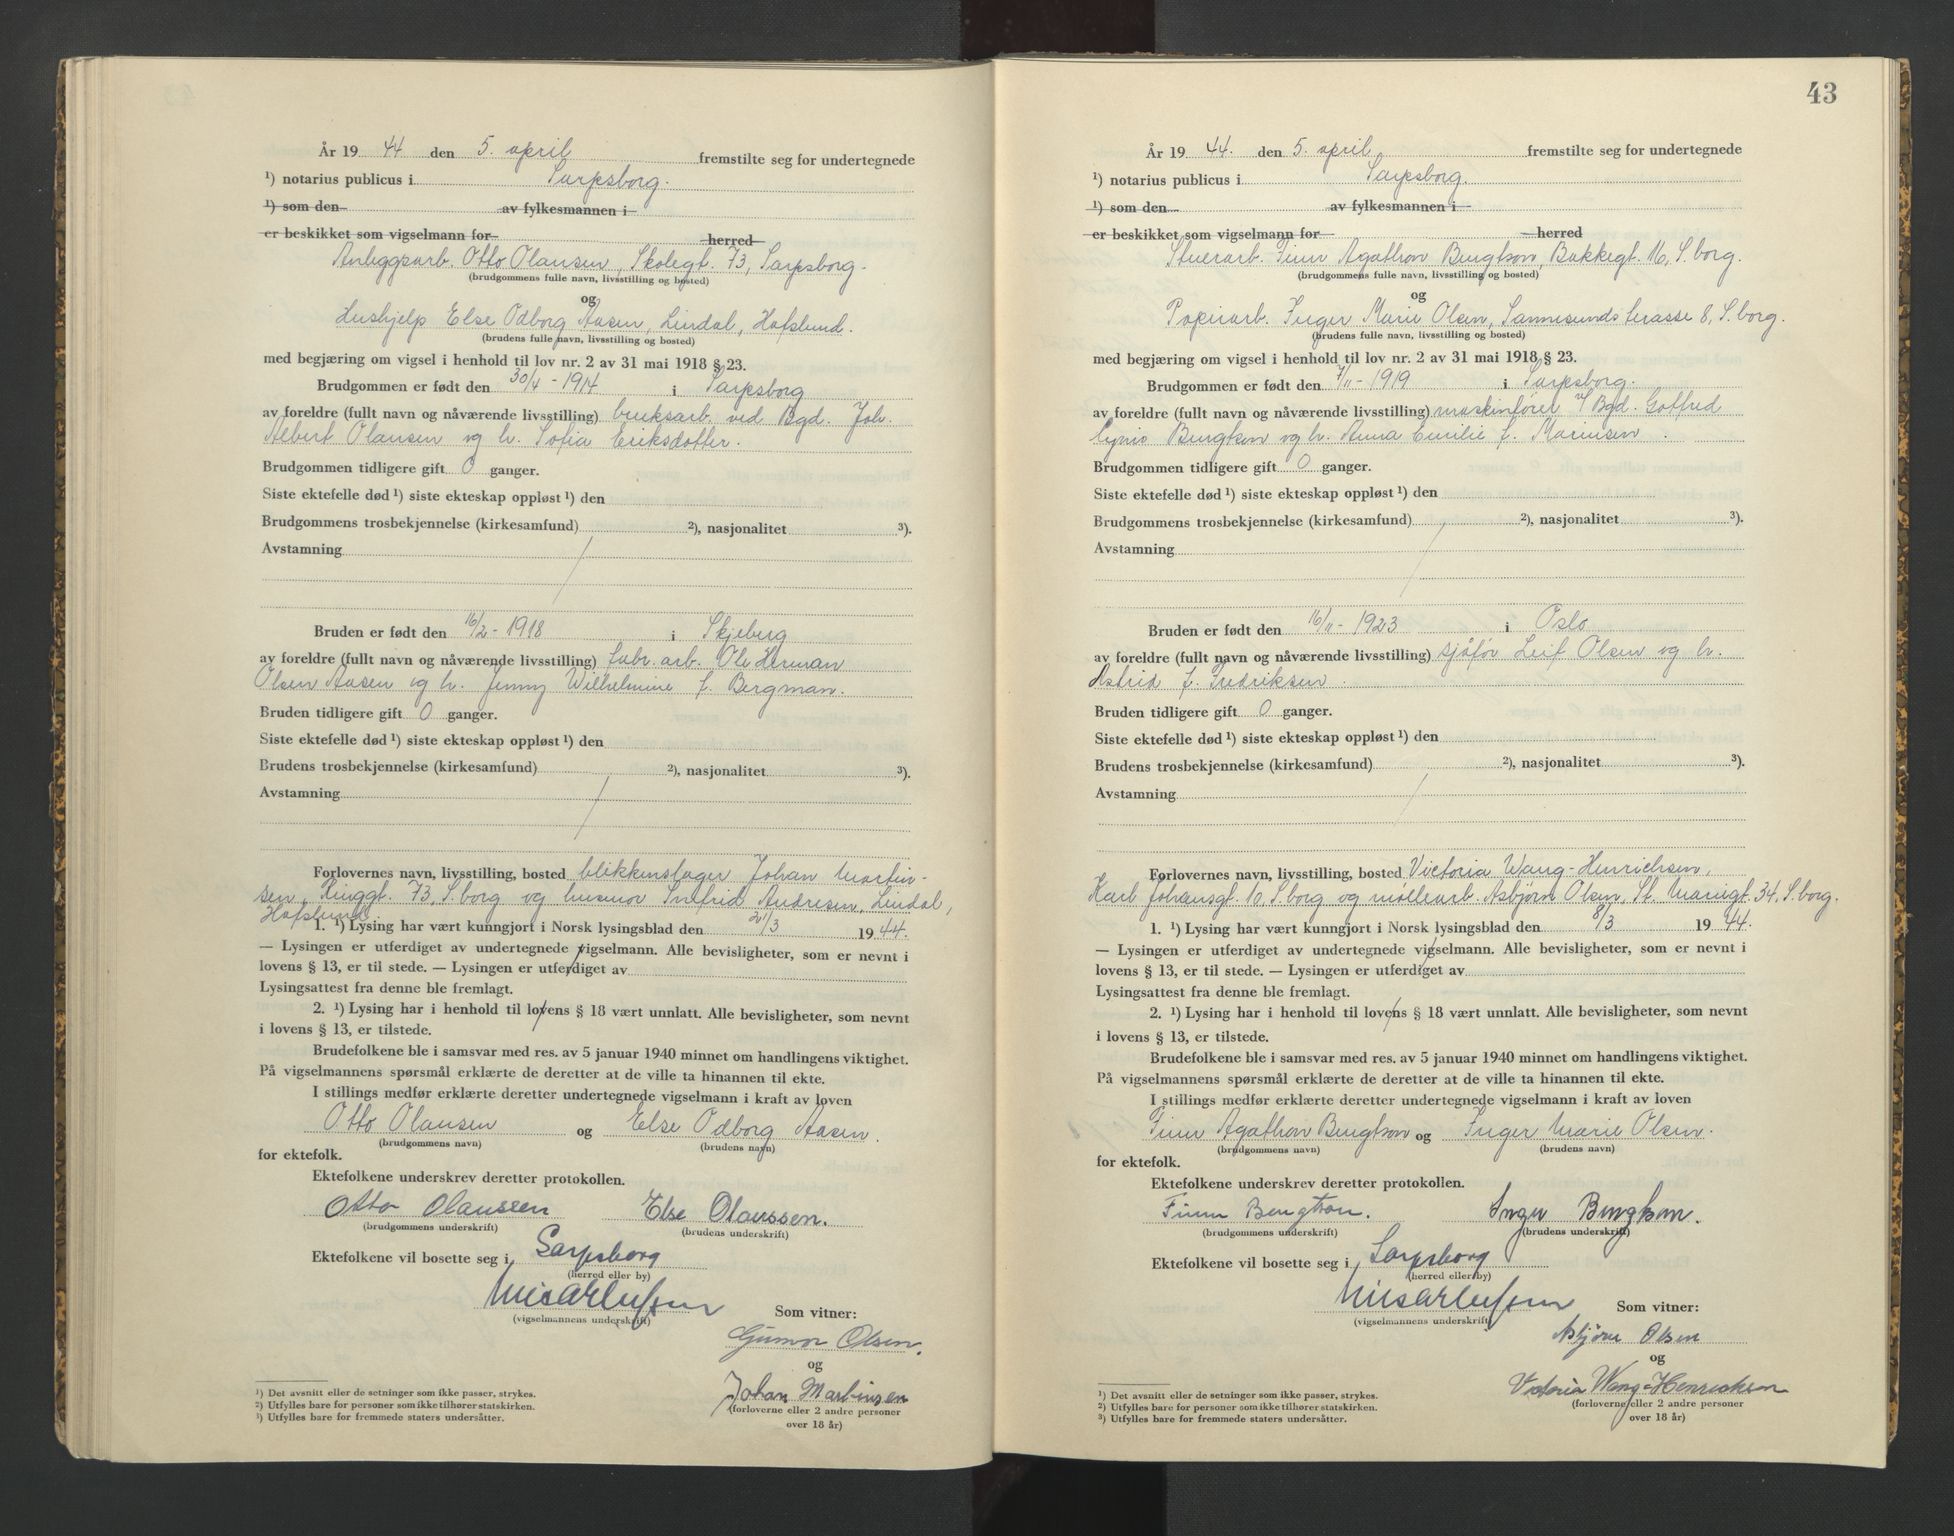 År 19 44 den 5. april fremstilte seg for undertegnede
¹) notarius publicus i Sarpsborg.
¹) som den av fylkesmannen i
er beskikket som vigselmann for herred
Anleggsarb. Otto Olausen, Skolegt. 73, Sarpsborg.
(brudgommens fulle navn, livsstilling og bosted)
og
Hushjelp Else Odborg Aasen, Lindal, Hafslund.
(brudens fulle navn, livsstilling og bosted)
med begjæring om vigsel i henhold til lov nr. 2 av 31 mai 1918 § 23.
Brudgommen er født den 30/4 - 1914 i Sarpsborg
av foreldre (fullt navn og nåværende livsstilling) bruksarb. ved Bgd. Joh.
Albert Olausen og h. Sofia Eriksdotter.
Brudgommen tidligere gift 0 ganger.
Siste ektefelle død ¹) siste ekteskap oppløst ¹) den
Brudgommens trosbekjennelse (kirkesamfund) ²), nasjonalitet ³).
Avstamning
Bruden er født den 16/2 - 1918 i Skjeberg
av foreldre (fullt navn og nåværende livsstilling) fabr. arb. Ole Herman
Olsen Aasen og h. Jenny Wilhelmine f. Bergman.
Bruden tidligere gift 0 ganger.
Siste ektefelle død ¹) siste ekteskap oppløst ¹) den
Brudens trosbekjennelse (kirkesamfund) ²), nasjonalitet ³).
Avstamning
Forlovernes navn, livsstilling, bosted blikkenslager Johan Martin-
sen, Ringgt. 73, S.borg og husmor Andresen, Lindal,
Hafslund.
1. ¹) Lysing har vært kunngjort i Norsk lysingsblad den 21/3 19 44.
— Lysingen er utferdiget av undertegnede vigselmann. Alle bevisligheter, som er nevnt i
lovens § 13, er til stede. — Lysingen er utferdiget av
Lysingsattest fra denne ble fremlagt.
2. ¹) Lysing har i henhold til lovens § 18 vært unnlatt. Alle bevisligheter, som nevnt
i lovens § 13, er tilstede.
Brudefolkene ble i samsvar med res. av 5 januar 1940 minnet om handlingens viktighet.
På vigselmannens spørsmål erklærte de deretter at de ville ta hinannen til ekte.
I stillings medfør erklærte deretter undertegnede vigselmann i kraft av loven
Otto Olausen og Else Odborg Aasen.
(brudgommens navn) (brudens navn)
for ektefolk.
Ektefolkene underskrev deretter protokollen.
Otto Olaussen Else Olaussen.
(brudgommens underskrift) (brudens underskrift)
Ektefolkene vil bosette seg i Sarpsborg
(herred eller by)
Som vitner:
(vigselmannens underskrift)
Gunvor Olsen.
og
Johan Martinsen
(forloverne eller 2 andre personer
over 18 år)
¹) Det avsnitt eller de setninger som ikke passer, strykes.
²) Utfylles bare for personer som ikke tilhører statskirken.
³) Utfylles bare for fremmede staters undersåtter.
43
År 19 44. den 5. april fremstilte seg for undertegnede
¹) notarius publicus i Sarpsborg.
¹) som den av fylkesmannen i
er beskikket som vigselmann for herred
Stuerarb. Finn Agathon Bengtson, Bakkegt. 16, S.borg.
(brudgommens fulle navn, livsstilling og bosted)
og
Papirarb. Inger Marie Olsen, Sannesunds terasse 8, S.borg.
(brudens fulle navn, livsstilling og bosted)
med begjæring om vigsel i henhold til lov nr. 2 av 31 mai 1918 § 23.
Brudgommen er født den 7/11 - 1919 i Sarpsborg.
av foreldre (fullt navn og nåværende livsstilling) maskinfører v/ Bgd. Gotfred
Bengtson og h. Anna Emilie f. Marinsen.
Brudgommen tidligere gift 0 ganger.
Siste ektefelle død ¹) siste ekteskap oppløst ¹) den
Brudgommens trosbekjennelse (kirkesamfund) ²), nasjonalitet ³).
Avstamning
Bruden er født den 16/11 - 1923 i Oslo
av foreldre (fullt navn og nåværende livsstilling) sjåfør Leif Olsen og h.
Astrid f. Fredriksen.
Bruden tidligere gift 0 ganger.
Siste ektefelle død ¹) siste ekteskap oppløst ¹) den
Brudens trosbekjennelse (kirkesamfund) ²), nasjonalitet ³).
Avstamning
Forlovernes navn, livsstilling, bosted Victoria Wang-Henrichsen,
Karl Johansgt. 10, S.borg og møllearb. Asbjørn Olsen, St. Mariegt. 34, S.borg.
1. ¹) Lysing har vært kunngjort i Norsk lysingsblad den 8/3 19 44.
— Lysingen er utferdiget av undertegnede vigselmann. Alle bevisligheter, som er nevnt i
lovens § 13, er til stede. — Lysingen er utferdiget av
Lysingsattest fra denne ble fremlagt.
2. ¹) Lysing har i henhold til lovens § 18 vært unnlatt. Alle bevisligheter, som nevnt
i lovens § 13, er tilstede.
Brudefolkene ble i samsvar med res. av 5 januar 1940 minnet om handlingens viktighet.
På vigselmannens spørsmål erklærte de deretter at de ville ta hinannen til ekte.
I stillings medfør erklærte deretter undertegnede vigselmann i kraft av loven
Finn Agathon Bengtson og Inger Marie Olsen.
(brudgommens navn) (brudens navn)
for ektefolk.
Ektefolkene underskrev deretter protokollen.
Finn Bengtson. Inger Bengtson.
(brudgommens underskrift) (brudens underskrift)
Ektefolkene vil bosette seg i Sarpsborg
(herred eller by)
Som vitner:
(vigselmannens underskrift)
Asbjørn Olsen
og
Victoria Wang-Henrichsen
(forloverne eller 2 andre personer
over 18 år)
¹) Det avsnitt eller de setninger som ikke passer, strykes.
²) Utfylles bare for personer som ikke tilhører statskirken.
³) Utfylles bare for fremmede staters undersåtter.